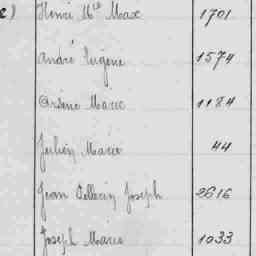 c) Henri Mie Max 1701
André Eugène 1574
Arsène Marie 1184
Julien Marie 44
Jean Joseph 2616
Joseph Marie 1033